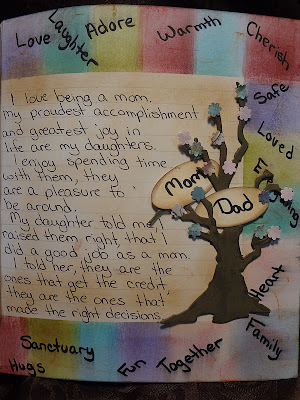 Love
Laughter
Adore
Warmth
Cherish
Safe
Loved
Heart
Family
Together
Fun
Sanctuary
Hugs
I love being a mom.
my proudest accomplishment
and greatest joy in
life are my daughters.
I enjoy spending time
with them, they
are a pleasure to
be around.
My daughter told me I
raised them right, that I
did a good job as a mom.
I told her, they are the
ones that get the credit,
they are the ones that
made the right decisions
Mom
Dad